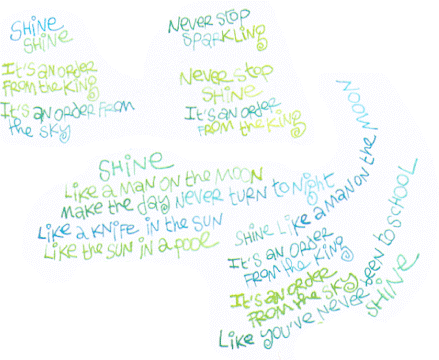 SHiNE
SHiNE
It's an order
from the King
It's an order from
the sky
Never stop
SPARKLiNG
Never stop
SHiNE
It's an order
from the King
SHiNE
Like a man on the moon
make the day never turn to night
Like a Knife in the sun
Like the sun in a pool
SHiNE Like a man on the moon
It's an order
from the King
It's an order
from the sky
Like you've never been to SCHOOL
SHiNE